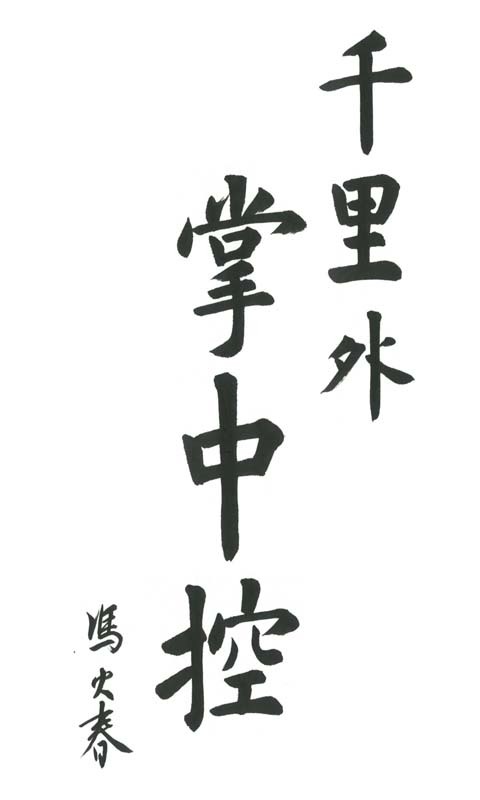 千里外
掌中控
馮火春